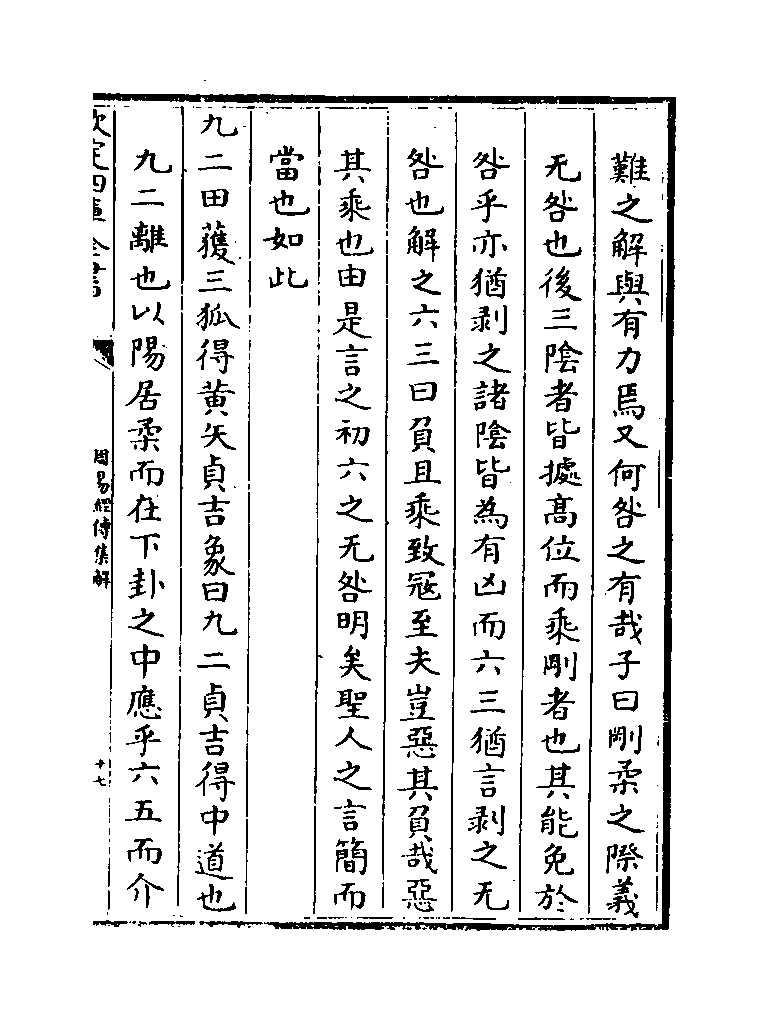 難之解與有力焉又何咎之有哉子曰剛柔之際義
无咎也後三陰者皆據髙位而乘剛者也其能免於
咎乎亦猶剥之諸陰皆為有凶而六三猶言剥之无
咎也解之六三曰負且乘致宼至夫豈惡其負哉惡
其乘也由是言之初六之无咎明矣聖人之言簡而
當也如此
九二田獲三狐得黄矢貞吉象曰九二貞吉得中道也
九二離也以陽居柔而在下卦之中應乎六五而介
欽定四庫全書
周易經傳集解
十七